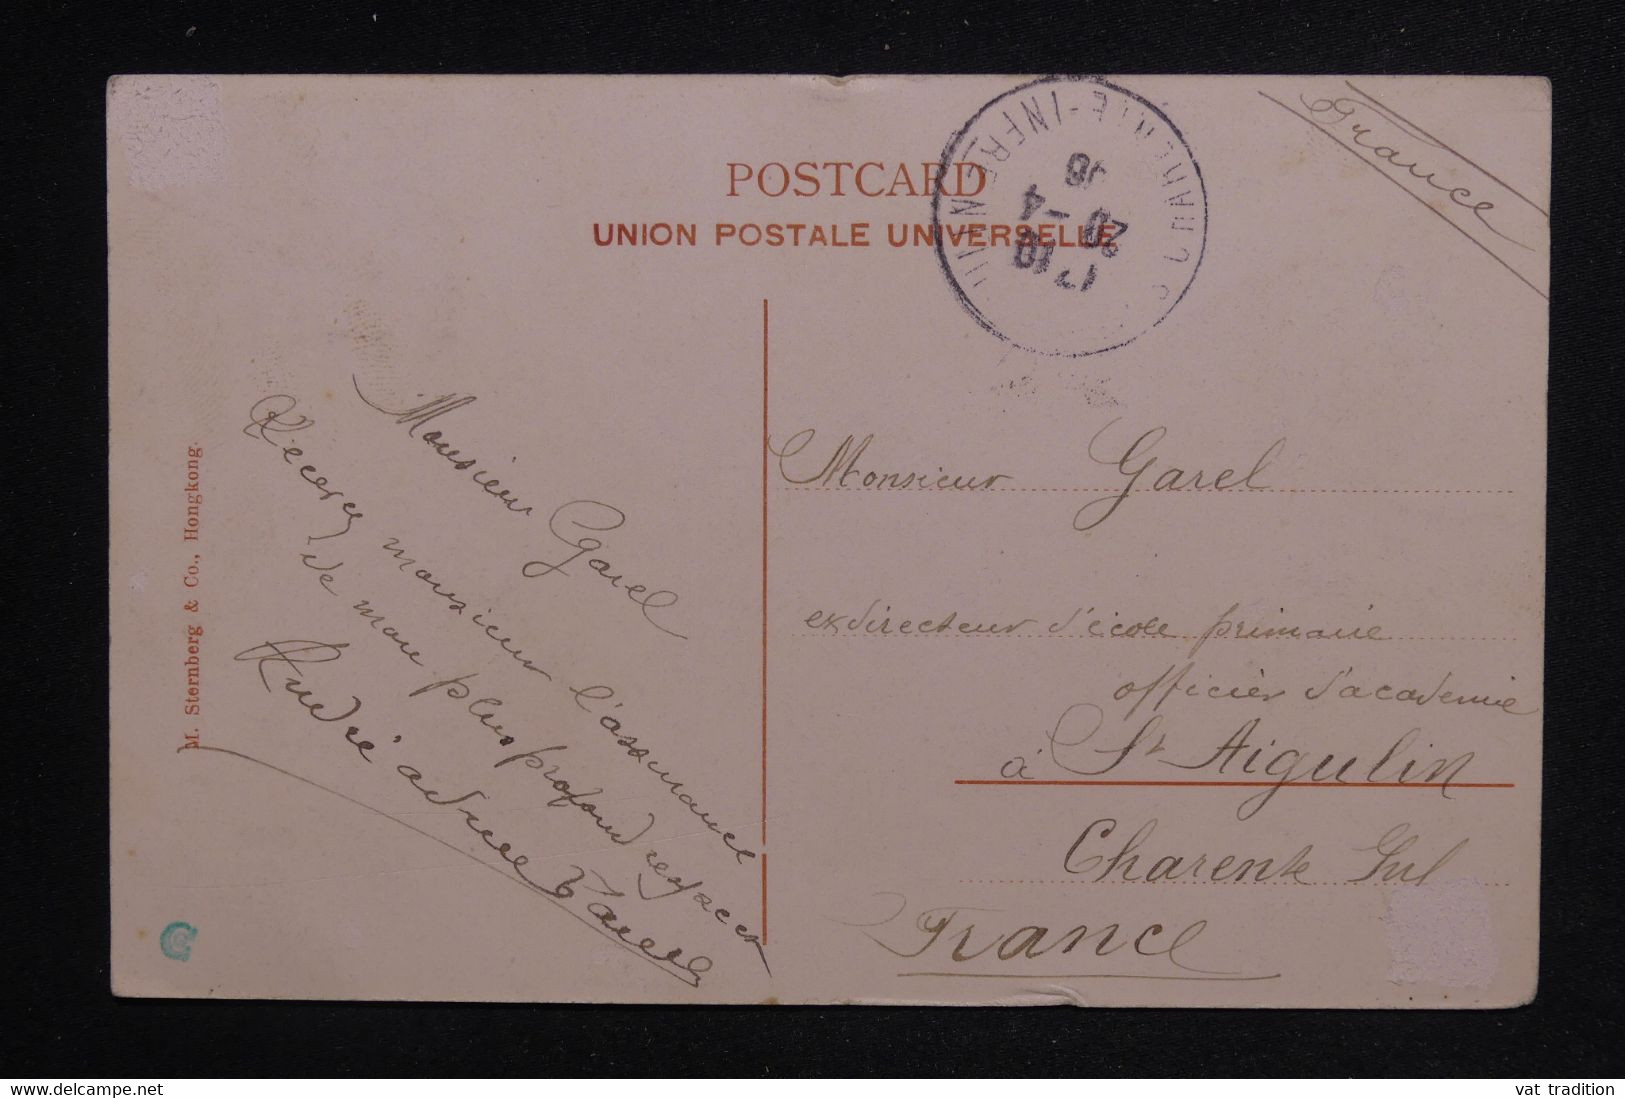 France
POSTCARD
UNION POSTALE UNIVERSELLE
CHARENTE-INFRE
17 10
20 -4
08
M. Sternberg & Co., Hongkong.
Monsieur Garel
Recevez monsieur l'assurance
de mon plus profond respect
Monsieur Garel
exdirecteur d'école primaire
officier d'academie
à St Aigulin
Charente Inf
France
vat tradition
www.delcampe.net